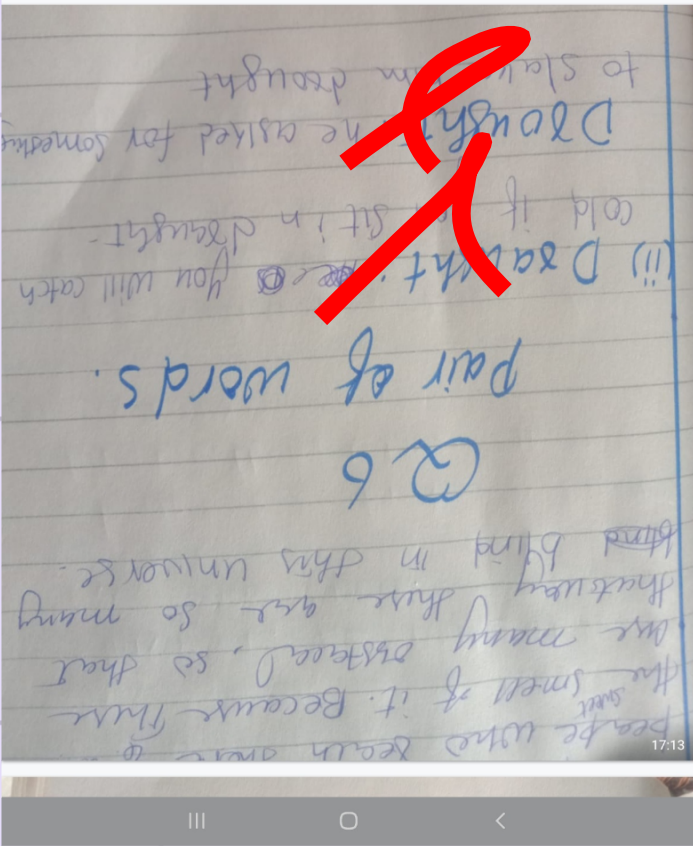 people who learn
sweet
the smell of it. Because there
are many obstecal, so that
thatswhy there are so many
blind in this universe.
Q 6
pair of words.
(ii) Draught: you will catch
cold if sit in draught.
Drought: he asked for
to slake him drought
17:13